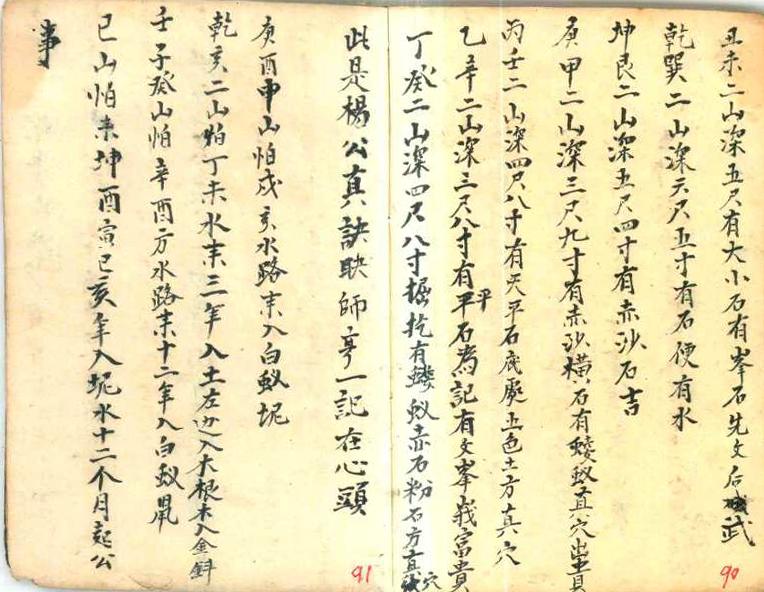 丑未二山深五尺有大小石有峯石先文后武
乾巽二山深六尺五寸有石便有水
坤艮二山深五尺四寸有赤沙石吉
庚甲二山深三尺九寸有赤沙橫石有螻蚁真穴出貴
丙壬二山深四尺八寸有尖平石底處五色土方真穴
乙辛二山深三尺八寸有平石為記有文峯峩富貴
平
丁癸二山深四尺八寸掘扢有螻蚁赤石粉石方真穴
90
此是楊公真訣 師 一記在心頭
庚酉申山怕戌亥水路来入白蚁坭
乾亥二山怕丁未水来三年入土左边入大根木入金
壬子癸山怕辛酉方水路来十二年入白蚁鼠
巳山怕未坤酉寅巳亥年入坭水十二个月起公
事
91